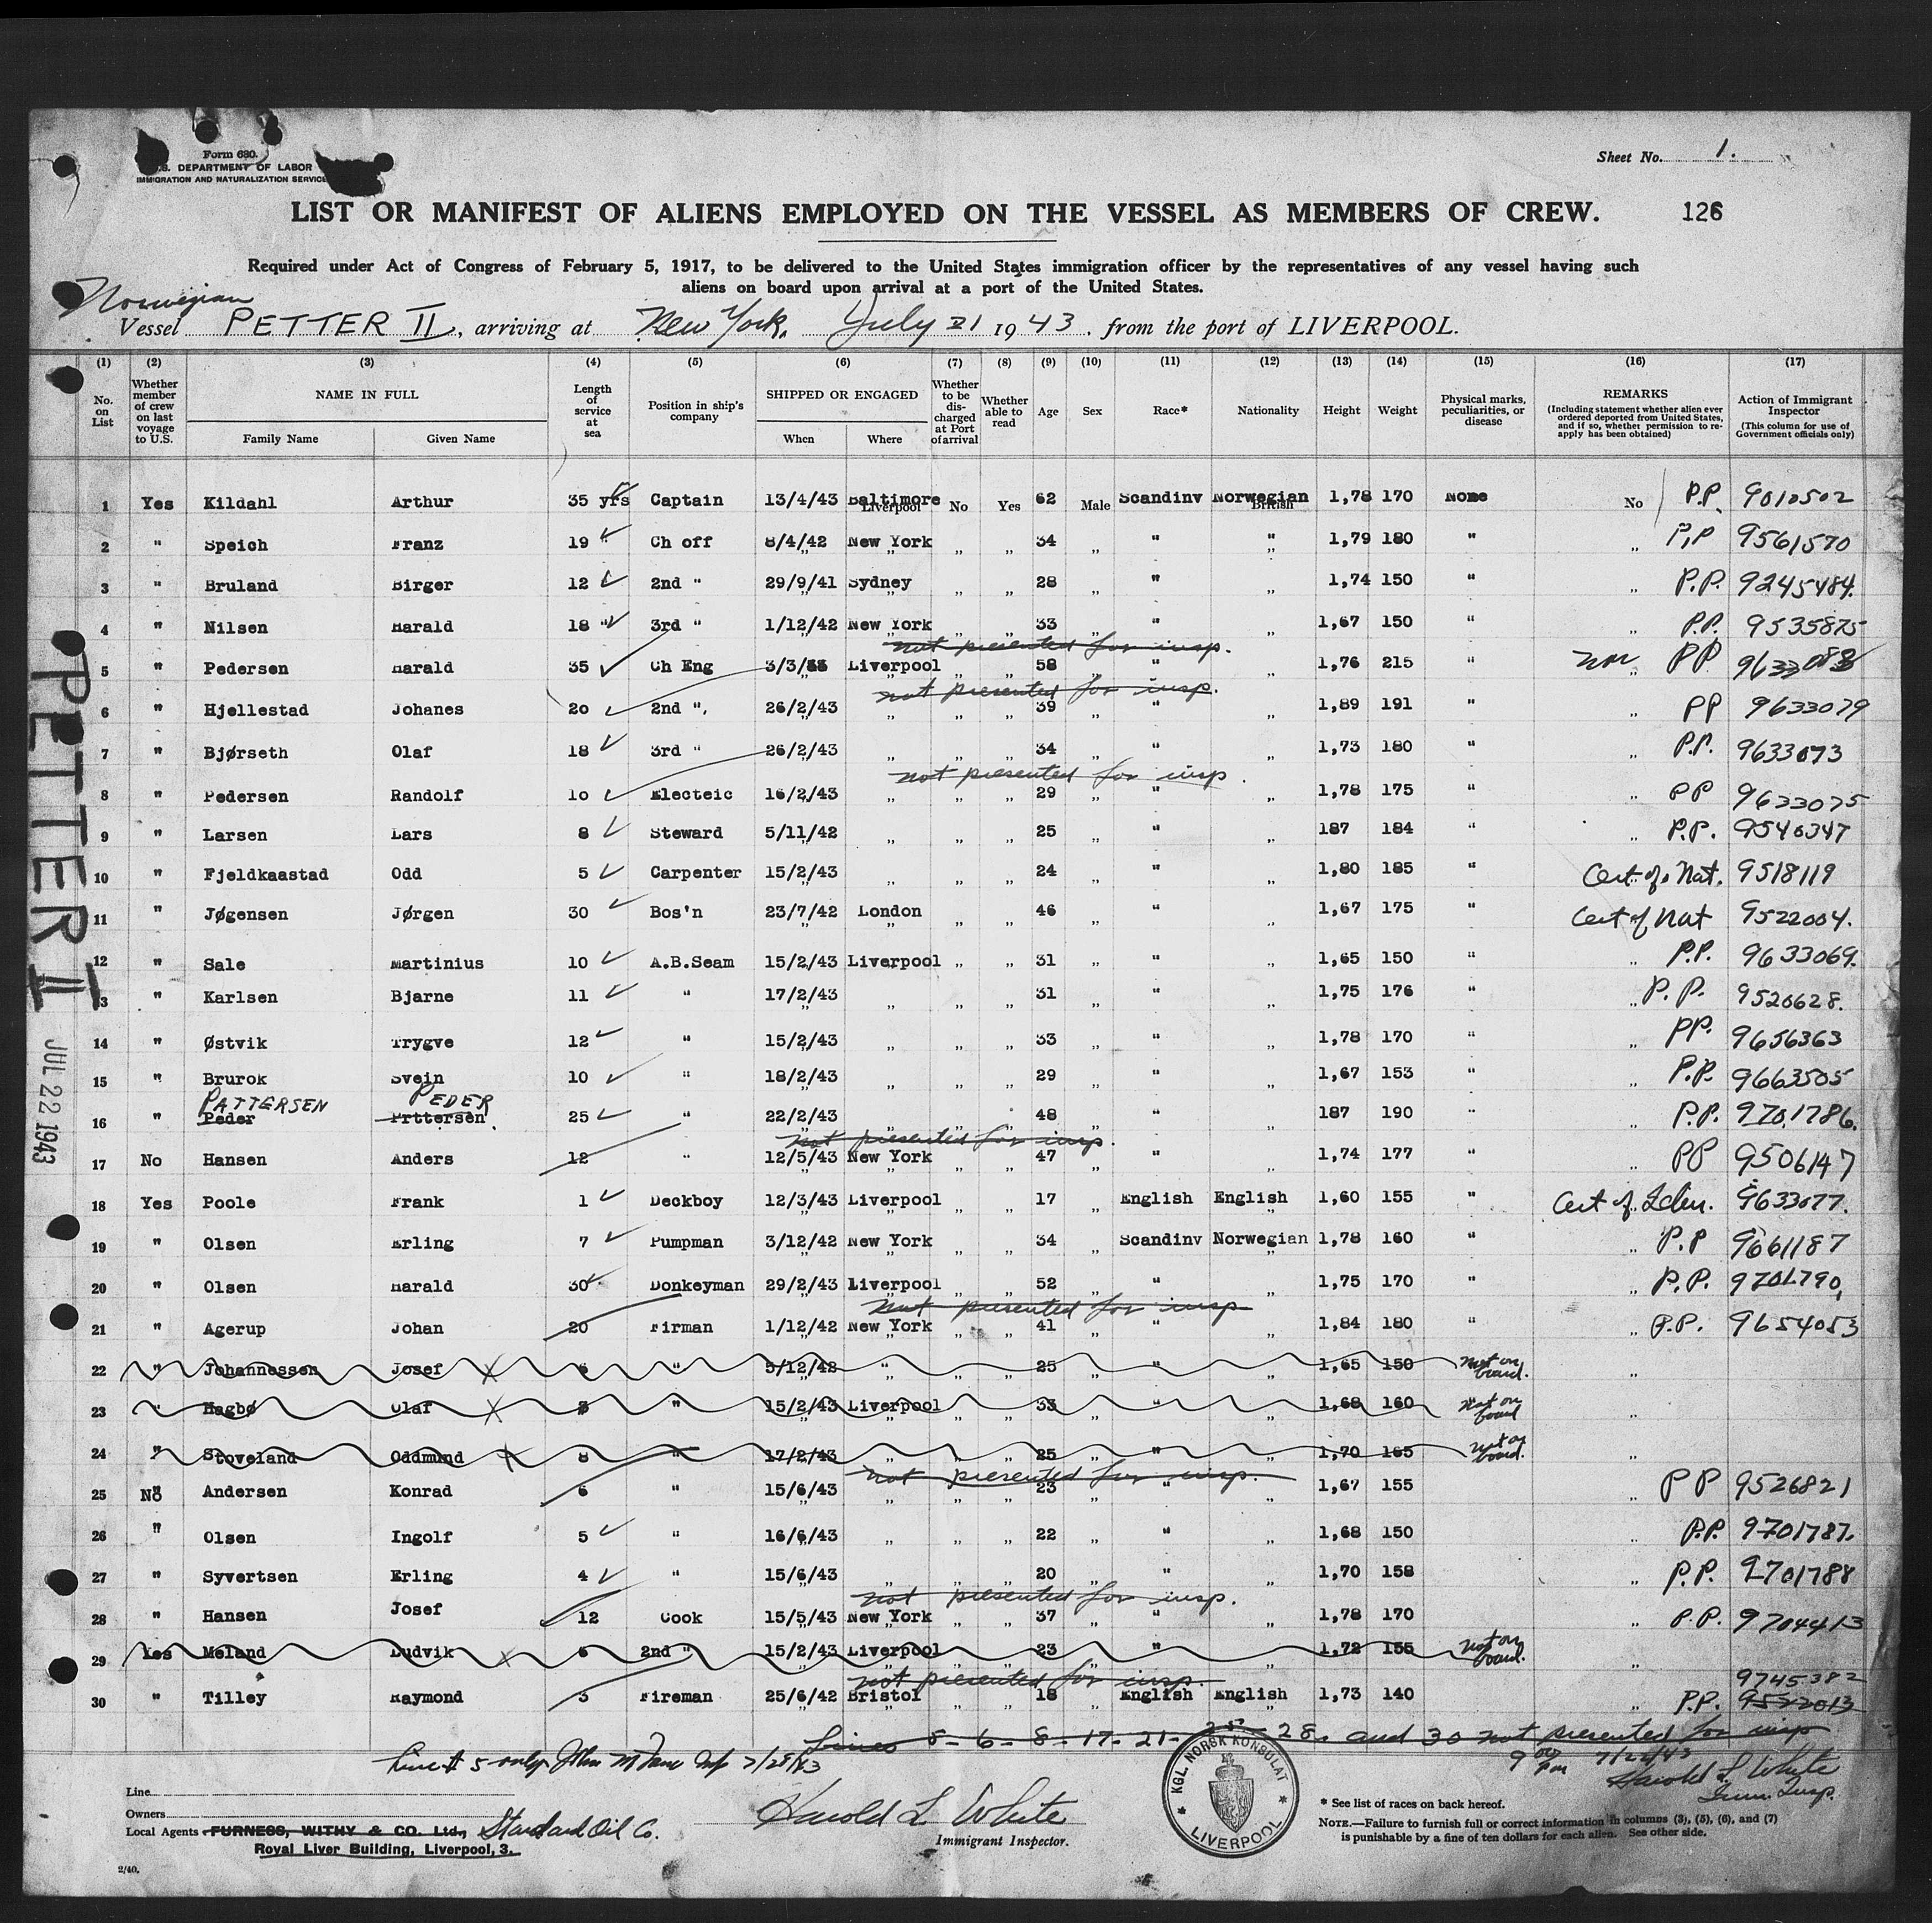 Form 680.
U.S. DEPARTMENT OF LABOR
IMMIGRATION AND NATURALIZATION SERVICE
Sheet No. 1.
LIST OR MANIFEST OF ALIENS EMPLOYED ON THE VESSEL AS MEMBERS OF CREW. 126
Required under Act of Congress of February 5, 1917, to be delivered to the United States immigration officer by the representatives of any vessel having such
aliens on board upon arrival at a port of the United States.
Norwegian
Vessel PETTER II, arriving at New York, July 21 1943, from the port of LIVERPOOL.
(1) (2) (3) (4) (5) (6) (7) (8) (9) (10) (11) (12) (13) (14) (15) (16) (17)
No. on List Whether member of crew on last voyage to U.S. NAME IN FULL Family Name Given Name Length of service at sea Position in ship's company SHIPPED OR ENGAGED When Where Whether to be discharged at Port of arrival Whether able to read Age Sex Race* Nationality Height Weight Physical marks, peculiarities, or disease REMARKS (Including statement whether alien ever ordered deported from United States, and if so, whether permission to re-apply has been obtained) Action of Immigrant Inspector (This column for use of Government officials only)
1 Yes Kildahl Arthur 35 yrs Captain 13/4/43 Baltimore Liverpool No Yes 62 Male Scandinv Norwegian British 1,78 170 None No P.P. 9010502
2 " Speich Franz 19 " Ch off 8/4/42 New York „ „ 34 „ " " 1,79 180 " „ P.P 9561570
3 " Bruland Birger 12 2nd " 29/9/41 Sydney „ „ 28 „ " „ 1,74 150 " „ P.P. 9245484.
4 " Nilsen Harald 18 " 3rd " 1/12/42 New York „ „ 33 „ " „ 1,67 150 " „ P.P. 9535875
not presented for insp.
5 " Pedersen Harald 35 Ch Eng 3/3/ Liverpool „ „ 58 „ " „ 1,76 215 " PP
not presented for insp.
6 " Hjellestad Johanes 20 2nd ", 26/2/43 „ „ „ 39 „ " „ 1,89 191 " „ PP 9633079
7 " Bjørseth Olaf 18 3rd " 26/2/43 „ „ „ 34 „ " „ 1,73 180 " „ P.P. 9633073
not presented for insp.
8 " Pedersen Randolf 10 Electeic 16/2/43 „ „ „ 29 „ " „ 1,78 175 " „ PP 9633075
9 " Larsen Lars 8 Steward 5/11/42 „ „ „ 25 „ " „ 187 184 " „ P.P. 9540347
10 " Fjeldkaastad Odd 5 Carpenter 15/2/43 „ „ „ 24 „ " „ 1,80 185 " Cert of Nat. 9518119
11 " Jøgensen Jørgen 30 Bos'n 23/7/42 London „ „ 46 „ " „ 1,67 175 " Cert of Nat 9522004.
12 " Sale Martinius 10 A.B.Seam 15/2/43 Liverpool „ „ 31 „ " „ 1,65 150 " „ P.P. 9633069.
13 " Karlsen Bjarne 11 " 17/2/43 „ „ „ 31 „ " „ 1,75 176 " „ P.P. 9520628.
14 " Østvik Trygve 12 " 15/2/43 „ „ „ 33 „ " „ 1,78 170 " „ PP. 9656363
15 " Brurok Svein 10 " 18/2/43 „ „ „ 29 „ " „ 1,67 153 " „ P.P. 9663505
PATTERSEN PEDER
16 " Peder Pettersen 25 " 22/2/43 „ „ „ 48 „ " „ 187 190 " „ P.P. 9701786.
not presented for insp.
17 No Hansen Anders 12 " 12/5/43 New York „ „ 47 „ " „ 1,74 177 " „ PP 9506147
18 Yes Poole Frank 1 Deckboy 12/3/43 Liverpool „ „ 17 „ English English 1,60 155 " Cert of Iden. 9633077.
19 " Olsen Erling 7 Pumpman 3/12/42 New York „ „ 34 „ Scandinv Norwegian 1,78 160 " „ P.P 9661187
20 " Olsen Harald 30 Donkeyman 29/2/43 Liverpool „ „ 52 „ " „ 1,75 170 " „ P.P. 9701790,
not presented for insp
21 " Agerup Johan 20 Firman 1/12/42 New York „ „ 41 „ " „ 1,84 180 " „ P.P. 9654053
22 " Johannessen Josef X 6 " 5/12/42 " „ „ 25 „ " „ 1,65 150 Not on board. „
23 " Hagbø Olaf X " 15/2/43 Liverpool „ „ 33 „ " „ 1,68 160 Not on board „
24 " Stoveland Oddmund X 8 " 17/2/43 „ „ „ 25 „ " „ 1,70 165 not on board. „
not presented for insp.
25 No Andersen Konrad 6 " 15/6/43 „ „ „ 23 „ " „ 1,67 155 „ PP 9526821
26 " Olsen Ingolf 5 " 16/6/43 „ „ „ 22 „ " „ 1,68 150 „ P.P. 9701787.
27 " Syvertsen Erling 4 " 15/6/43 „ „ „ 20 „ " „ 1,70 158 „ P.P. 9701788
not presented for insp.
28 " Hansen Josef 12 Cook 15/5/43 New York „ „ 37 „ " „ 1,78 170 „ P.P. 9704413
29 Yes Meland Ludvik X 6 2nd " 15/2/43 Liverpool „ „ 23 „ " „ 1,72 155 Not on board. „
not presented for insp. 9745382
30 " Tilley Raymond 3 Fireman 25/6/42 Bristol „ „ 18 „ English English 1,73 140 „ P.P. 9522013
Lines 5-6-8-17-21-25-28, and 30 not presented for insp
Line # 5 only 7/28/43
9 00 pm 7/22/43
Harold L White
Imm. Insp.
Line
Owners
Local Agents FURNESS, WITHY & CO. Ltd., Standard Oil Co.
Royal Liver Building, Liverpool, 3.
2/40.
Harold L White
Immigrant Inspector.
KGL. NORSK KONSULAT
LIVERPOOL
* See list of races on back hereof.
NOTE.—Failure to furnish full or correct information in columns (3), (5), (6), and (7)
is punishable by a fine of ten dollars for each alien. See other side.
PETTER II
JUL 22 1943